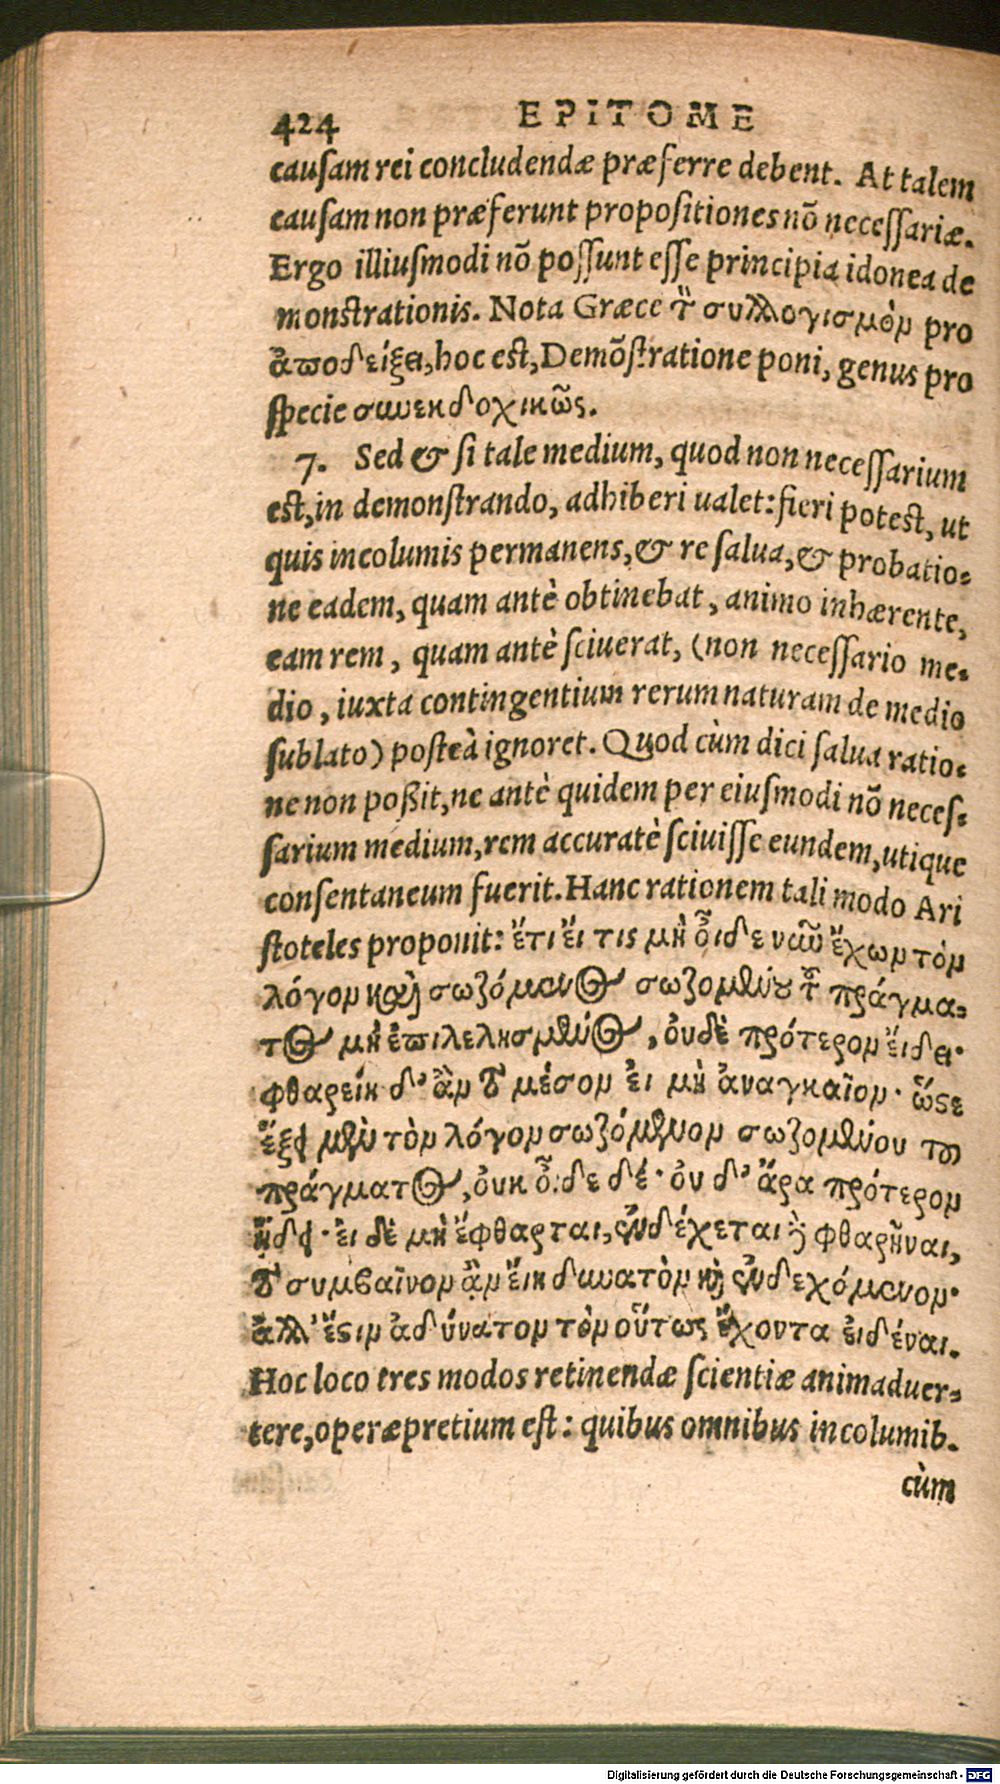 424 EPITOME
cauſam rei concludendæ præferre debent. At talem
cauſam non præferunt propoſitiones nõ neceſſariæ.
Ergo illiuſmodi nõ poſſunt eſſe principia idonea de
monſtrationis. Nota Græce τ̀ συλλογισμὸν pro
ἀποδείξει, hoc eſt, Demõſtratione poni, genus pro
ſpecie συνεκδοχικῶς.
7. Sed & ſi tale medium, quod non neceſſarium
eſt, in demonſtrando, adhiberi ualet: fieri poteſt, ut
quis incolumis permanens, & re ſalua, & probatio-
ne eadem, quam antè obtinebat, animo inhærente,
eam rem, quam antè ſciuerat, (non neceſſario me-
dio, iuxta contingentium rerum naturam de medio
ſublato) poſteà ignoret. Quod cùm dici ſalua ratio-
ne non poßit, ne antè quidem per eiuſmodi nõ neceſ-
ſarium medium, rem accuratè ſciuiſſe eundem, utique
conſentaneum fuerit. Hanc rationem tali modo Ari
ſtoteles proponit: ἔτι εἴ τις μὴ οἶδε νῦν ἔχων τὸν
λόγον καὶ σωζόμενος σωζομένου τοῦ πράγμα-
τος μὴ ἐπιλελησμένος, οὐδὲ πρότερον εἴδει·
φθαρείη δ' ἂν τὸ μέσον εἰ μὴ ἀναγκαῖον· ὥστε
ἕξει μὲν τὸν λόγον σωζόμενον σωζομένου τοῦ
πράγματος, οὐκ οἶδε δέ· οὐ δ' ἄρα πρότερον
ᾔδει· εἰ δὲ μὴ ἔφθαρται, ἐνδέχεται δὲ φθαρῆναι,
τὸ συμβαῖνον ἂν εἴη δυνατὸν καὶ ἐνδεχόμενον·
ἀλλ' ἔστιν ἀδύνατον τὸν οὕτως ἔχοντα εἰδέναι.
Hoc loco tres modos retinendæ ſcientiæ animaduer-
tere, operæpretium eſt: quibus omnibus incolumib.
cùm
Digitalisierung gefördert durch die Deutsche Forschungsgemeinschaft - DFG